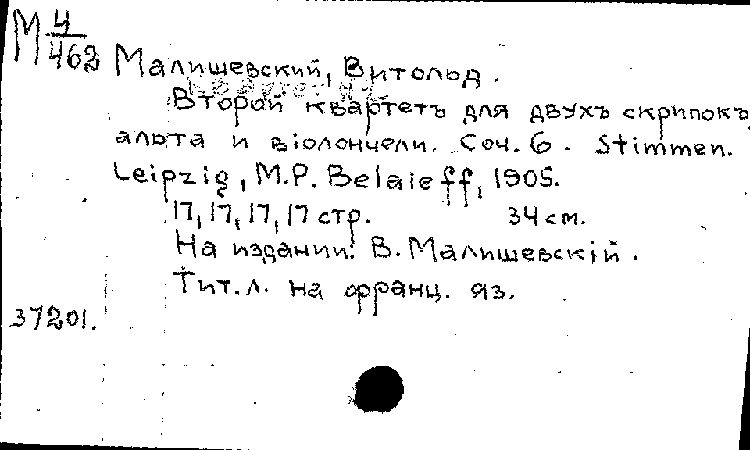 М 4/463
Малишевский, Витольд.
Второй квартетъ для двухъ скрипокъ,
альта и віолончели. Соч. 6. Stimmen.
Leipzig, M.P. Belaieff, 1905.
17, 17, 17, 17 стр. 34 см.
На издании: В. Малишевскій.
Тит. л. на франц. яз.
37201.